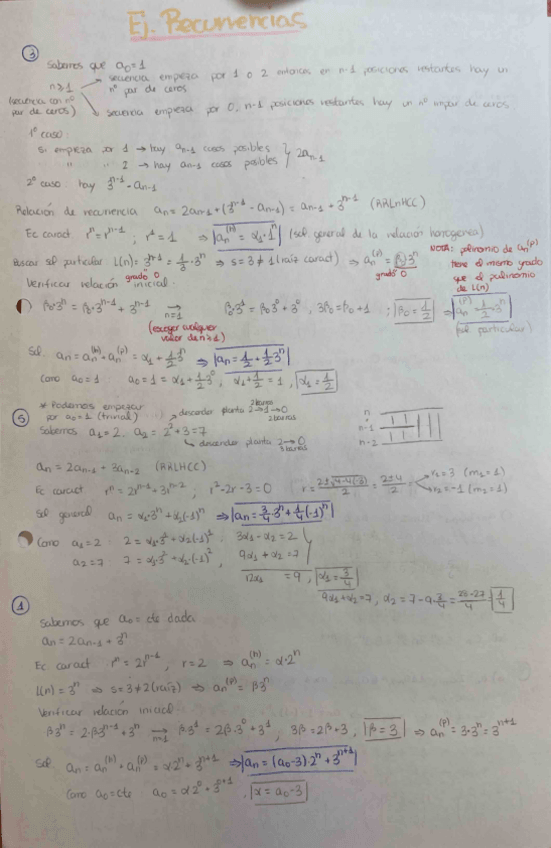 Ej. Recurrencias
③
Sabemos que a₀=1
n≥1 → secuencia empieza por 1 o 2 entonces en n-1 posiciones restantes hay un nº par de ceros
(secuencia con nº par de ceros) → secuencia empieza por 0, n-1 posiciones restantes hay un nº impar de ceros
1º caso:
Si empieza por 1 → hay aₙ₋₁ casos posibles } 2aₙ₋₁
" " 2 → hay aₙ₋₁ casos posibles
2º caso: hay 3ⁿ⁻¹ - aₙ₋₁
Relación de recurrencia aₙ = 2aₙ₋₁ + (3ⁿ⁻¹ - aₙ₋₁) = aₙ₋₁ + 3ⁿ⁻¹ (RRLnHCC)
Ec caract rⁿ = rⁿ⁻¹ ; r¹ = 1 ⇒ |aₙ⁽ʰ⁾ = α₁·1ⁿ| (sol general de la relación homogénea)
Buscar sol particular L(n) = 3ⁿ⁻¹ = 1/3·3ⁿ ⇒ s = 3 ≠ 1 (raíz caract) ⇒ aₙ⁽ᵖ⁾ = β₀·3ⁿ
grado 0
grado 0
NOTA: polinomio de aₙ⁽ᵖ⁾ tiene el mismo grado que el polinomio de L(n)
Verificar relación inicial:
β₀·3ⁿ = β₀·3ⁿ⁻¹ + 3ⁿ⁻¹ → n=1 β₀3¹ = β₀3⁰ + 3⁰, 3β₀ = β₀ + 1 ; |β₀ = 1/2| ⇒ |aₙ⁽ᵖ⁾ = 1/2·3ⁿ|
(escoger cualquier valor de n≥1)
(sol particular)
Sol. aₙ = aₙ⁽ʰ⁾ + aₙ⁽ᵖ⁾ = α₁ + 1/2·3ⁿ ⇒ |aₙ = 1/2 + 1/2·3ⁿ|
Como a₀=1 a₀ = 1 = α₁ + 1/2·3⁰, α₁ + 1/2 = 1, |α₁ = 1/2|
⑤
* Podemos empezar por a₀=1 (trivial)
Sabemos a₁ = 2, a₂ = 2² + 3 = 7
descender planta 2→1→0
2 barras
2 barras
descender planta 2→0
3 barras
n
n-1
n-2
aₙ = 2aₙ₋₁ + 3aₙ₋₂ (RRLHCC)
Ec caract rⁿ = 2rⁿ⁻¹ + 3rⁿ⁻², r² - 2r - 3 = 0 r = (2±√(4-4·(-3)))/2 = (2±4)/2 → r₁ = 3 (m₁=1)
→ r₂ = -1 (m₂=1)
Sol general aₙ = α₁·3ⁿ + α₂(-1)ⁿ ⇒ |aₙ = 3/4·3ⁿ + 1/4(-1)ⁿ|
Como a₁ = 2 : 2 = α₁·3¹ + α₂(-1)¹ : 3α₁ - α₂ = 2
a₂ = 7 : 7 = α₁·3² + α₂·(-1)² : 9α₁ + α₂ = 7
12α₁ = 9, |α₁ = 3/4|
9α₁ + α₂ = 7, α₂ = 7 - 9·3/4 = (28-27)/4 = |1/4|
①
Sabemos que a₀ = cte dada
aₙ = 2aₙ₋₁ + 3ⁿ
Ec caract rⁿ = 2rⁿ⁻¹, r = 2 ⇒ aₙ⁽ʰ⁾ = α·2ⁿ
L(n) = 3ⁿ ⇒ s = 3 ≠ 2 (raíz) ⇒ aₙ⁽ᵖ⁾ = β3ⁿ
Verificar relación inicial:
β3ⁿ = 2·β3ⁿ⁻¹ + 3ⁿ → n=1 β·3¹ = 2β·3⁰ + 3¹, 3β = 2β + 3, |β = 3| ⇒ aₙ⁽ᵖ⁾ = 3·3ⁿ = 3ⁿ⁺¹
Sol. aₙ = aₙ⁽ʰ⁾ + aₙ⁽ᵖ⁾ = α2ⁿ + 3ⁿ⁺¹ ⇒ |aₙ = (a₀-3)·2ⁿ + 3ⁿ⁺¹|
Como a₀ = cte a₀ = α2⁰ + 3⁰⁺¹, |α = a₀ - 3|